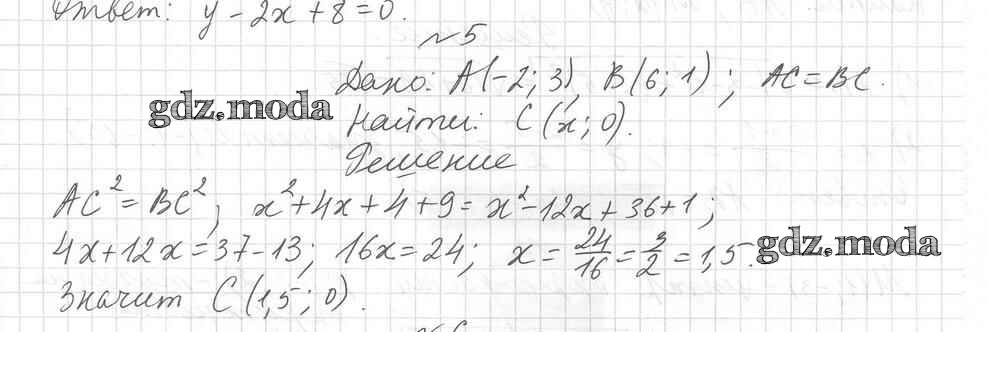 Ответ: y - 2x + 8 = 0.
№5
Дано: A(-2; 3), B(6; 1); AC = BC.
gdz.moda
Найти: C(x; 0).
Решение
AC² = BC²; x² + 4x + 4 + 9 = x² - 12x + 36 + 1;
4x + 12x = 37 - 13; 16x = 24; x = 24/16 = 3/2 = 1,5.
gdz.moda
Значит C(1,5; 0).